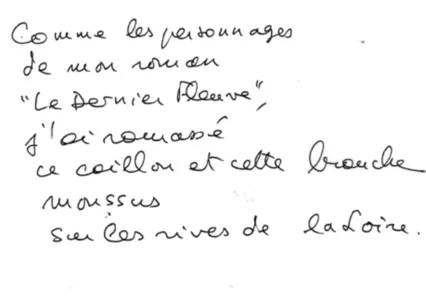 Comme les personnages
de mon roman
"Le Dernier Fleuve",
j'ai ramassé
ce caillou et cette branche
moussus
sur les rives de la Loire.